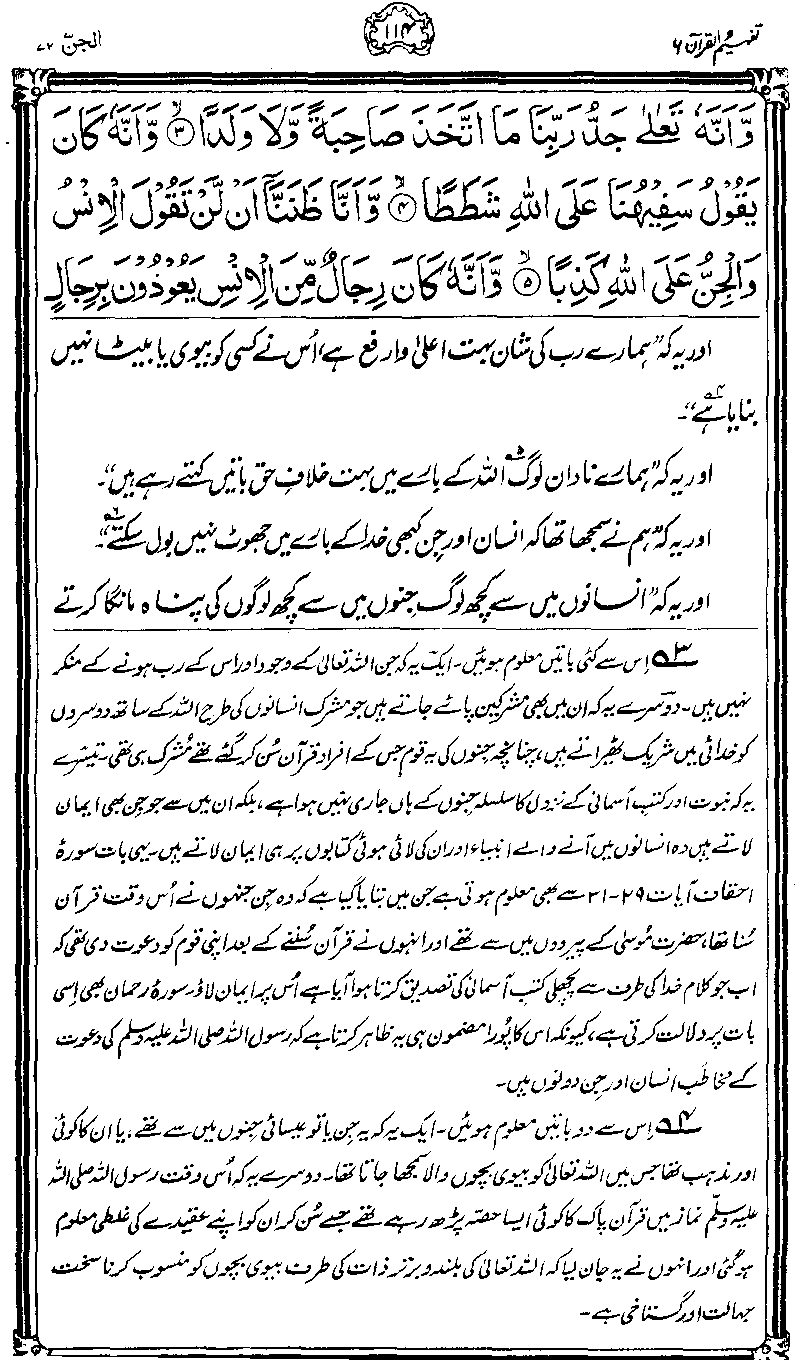 تفہیم القرآن ۶
۱۱۴
الجنّ ۷۲
وَّاَنَّهٗ تَعٰلٰى جَدُّ رَبِّنَا مَا اتَّخَذَ صَاحِبَةً وَّلَا وَلَدًا ۙ﴿۳﴾ وَّاَنَّهٗ كَانَ
يَقُوْلُ سَفِيْهُنَا عَلَى اللّٰهِ شَطَطًا ۙ﴿۴﴾ وَّاَنَّا ظَنَنَّاۤ اَنْ لَّنْ تَقُوْلَ الْاِنْسُ
وَالْجِنُّ عَلَى اللّٰهِ كَذِبًا ۙ﴿۵﴾ وَّاَنَّهٗ كَانَ رِجَالٌ مِّنَ الْاِنْسِ يَعُوْذُوْنَ بِرِجَالٍ
اور یہ کہ ”ہمارے رب کی شان بہت اعلیٰ و ارفع ہے، اُس نے کسی کو بیوی یا بیٹا نہیں
بنایا ہے۴“۔
اور یہ کہ ”ہمارے نادان لوگ۵ اللہ کے بارے میں بہت خلافِ حق باتیں کہتے رہے ہیں“۔
اور یہ کہ ”ہم نے سمجھا تھا کہ انسان اور جِن کبھی خدا کے بارے میں جھوٹ نہیں بول سکتے۶“۔
اور یہ کہ ”انسانوں میں سے کچھ لوگ جِنوں میں سے کچھ لوگوں کی پناہ مانگا کرتے
۳ اِس سے کئی باتیں معلوم ہوئیں۔ ایک یہ کہ جن اللہ تعالیٰ کے وجود اور اس کے رب ہونے کے منکر
نہیں ہیں۔ دوسرے یہ کہ ان میں بھی مشرکین پائے جاتے ہیں جو مشرک انسانوں کی طرح اللہ کے ساتھ دوسروں
کو خدائی میں شریک ٹھیراتے ہیں، چنانچہ جنوں کی یہ قوم جس کے افراد قرآن سُن کر گئے تھے مُشرک ہی تھی۔ تیسرے
یہ کہ نبوت اور کتب آسمانی کے نزول کا سلسلہ جنوں کے ہاں جاری نہیں ہوا ہے، بلکہ ان میں سے جو جن بھی ایمان
لاتے ہیں وہ انسانوں میں آنے والے انبیاء اور ان کی لائی ہوئی کتابوں پر ہی ایمان لاتے ہیں۔ یہی بات سورۂ
احقاف آیات ۲۹-۳۱ سے بھی معلوم ہوتی ہے جن میں بتایا گیا ہے کہ وہ جن جنہوں نے اُس وقت قرآن
سُنا تھا، حضرت مُوسیٰ کے پیرووں میں سے تھے اور انہوں نے قرآن سُننے کے بعد اپنی قوم کو دعوت دی تھی کہ
اب جو کلام خدا کی طرف سے پچھلی کتب آسمانی کی تصدیق کرتا ہوا آیا ہے اُس پر ایمان لاؤ۔ سورۂ رحمان بھی اِسی
بات پر دلالت کرتی ہے، کیونکہ اس کا پُورا مضمون ہی یہ ظاہر کرتا ہے کہ رسول اللہ صلی اللہ علیہ وسلم کی دعوت
کے مخاطَب انسان اور جن دونوں ہیں۔
۴ اِس سے دو باتیں معلوم ہوئیں۔ ایک یہ کہ یہ جن یا تو عیسائی جنوں میں سے تھے، یا ان کا کوئی
اور مذہب تھا جس میں اللہ تعالیٰ کو بیوی بچوں والا سمجھا جاتا تھا۔ دوسرے یہ کہ اُس وقت رسول اللہ صلی اللہ
علیہ وسلّم نماز میں قرآن پاک کا کوئی ایسا حصّہ پڑھ رہے تھے جسے سُن کر ان کو اپنے عقیدے کی غلطی معلوم
ہو گئی اور انہوں نے یہ جان لیا کہ اللہ تعالیٰ کی بلند و برتر ذات کی طرف بیوی بچوں کو منسوب کرنا سخت
جہالت اور گستاخی ہے۔